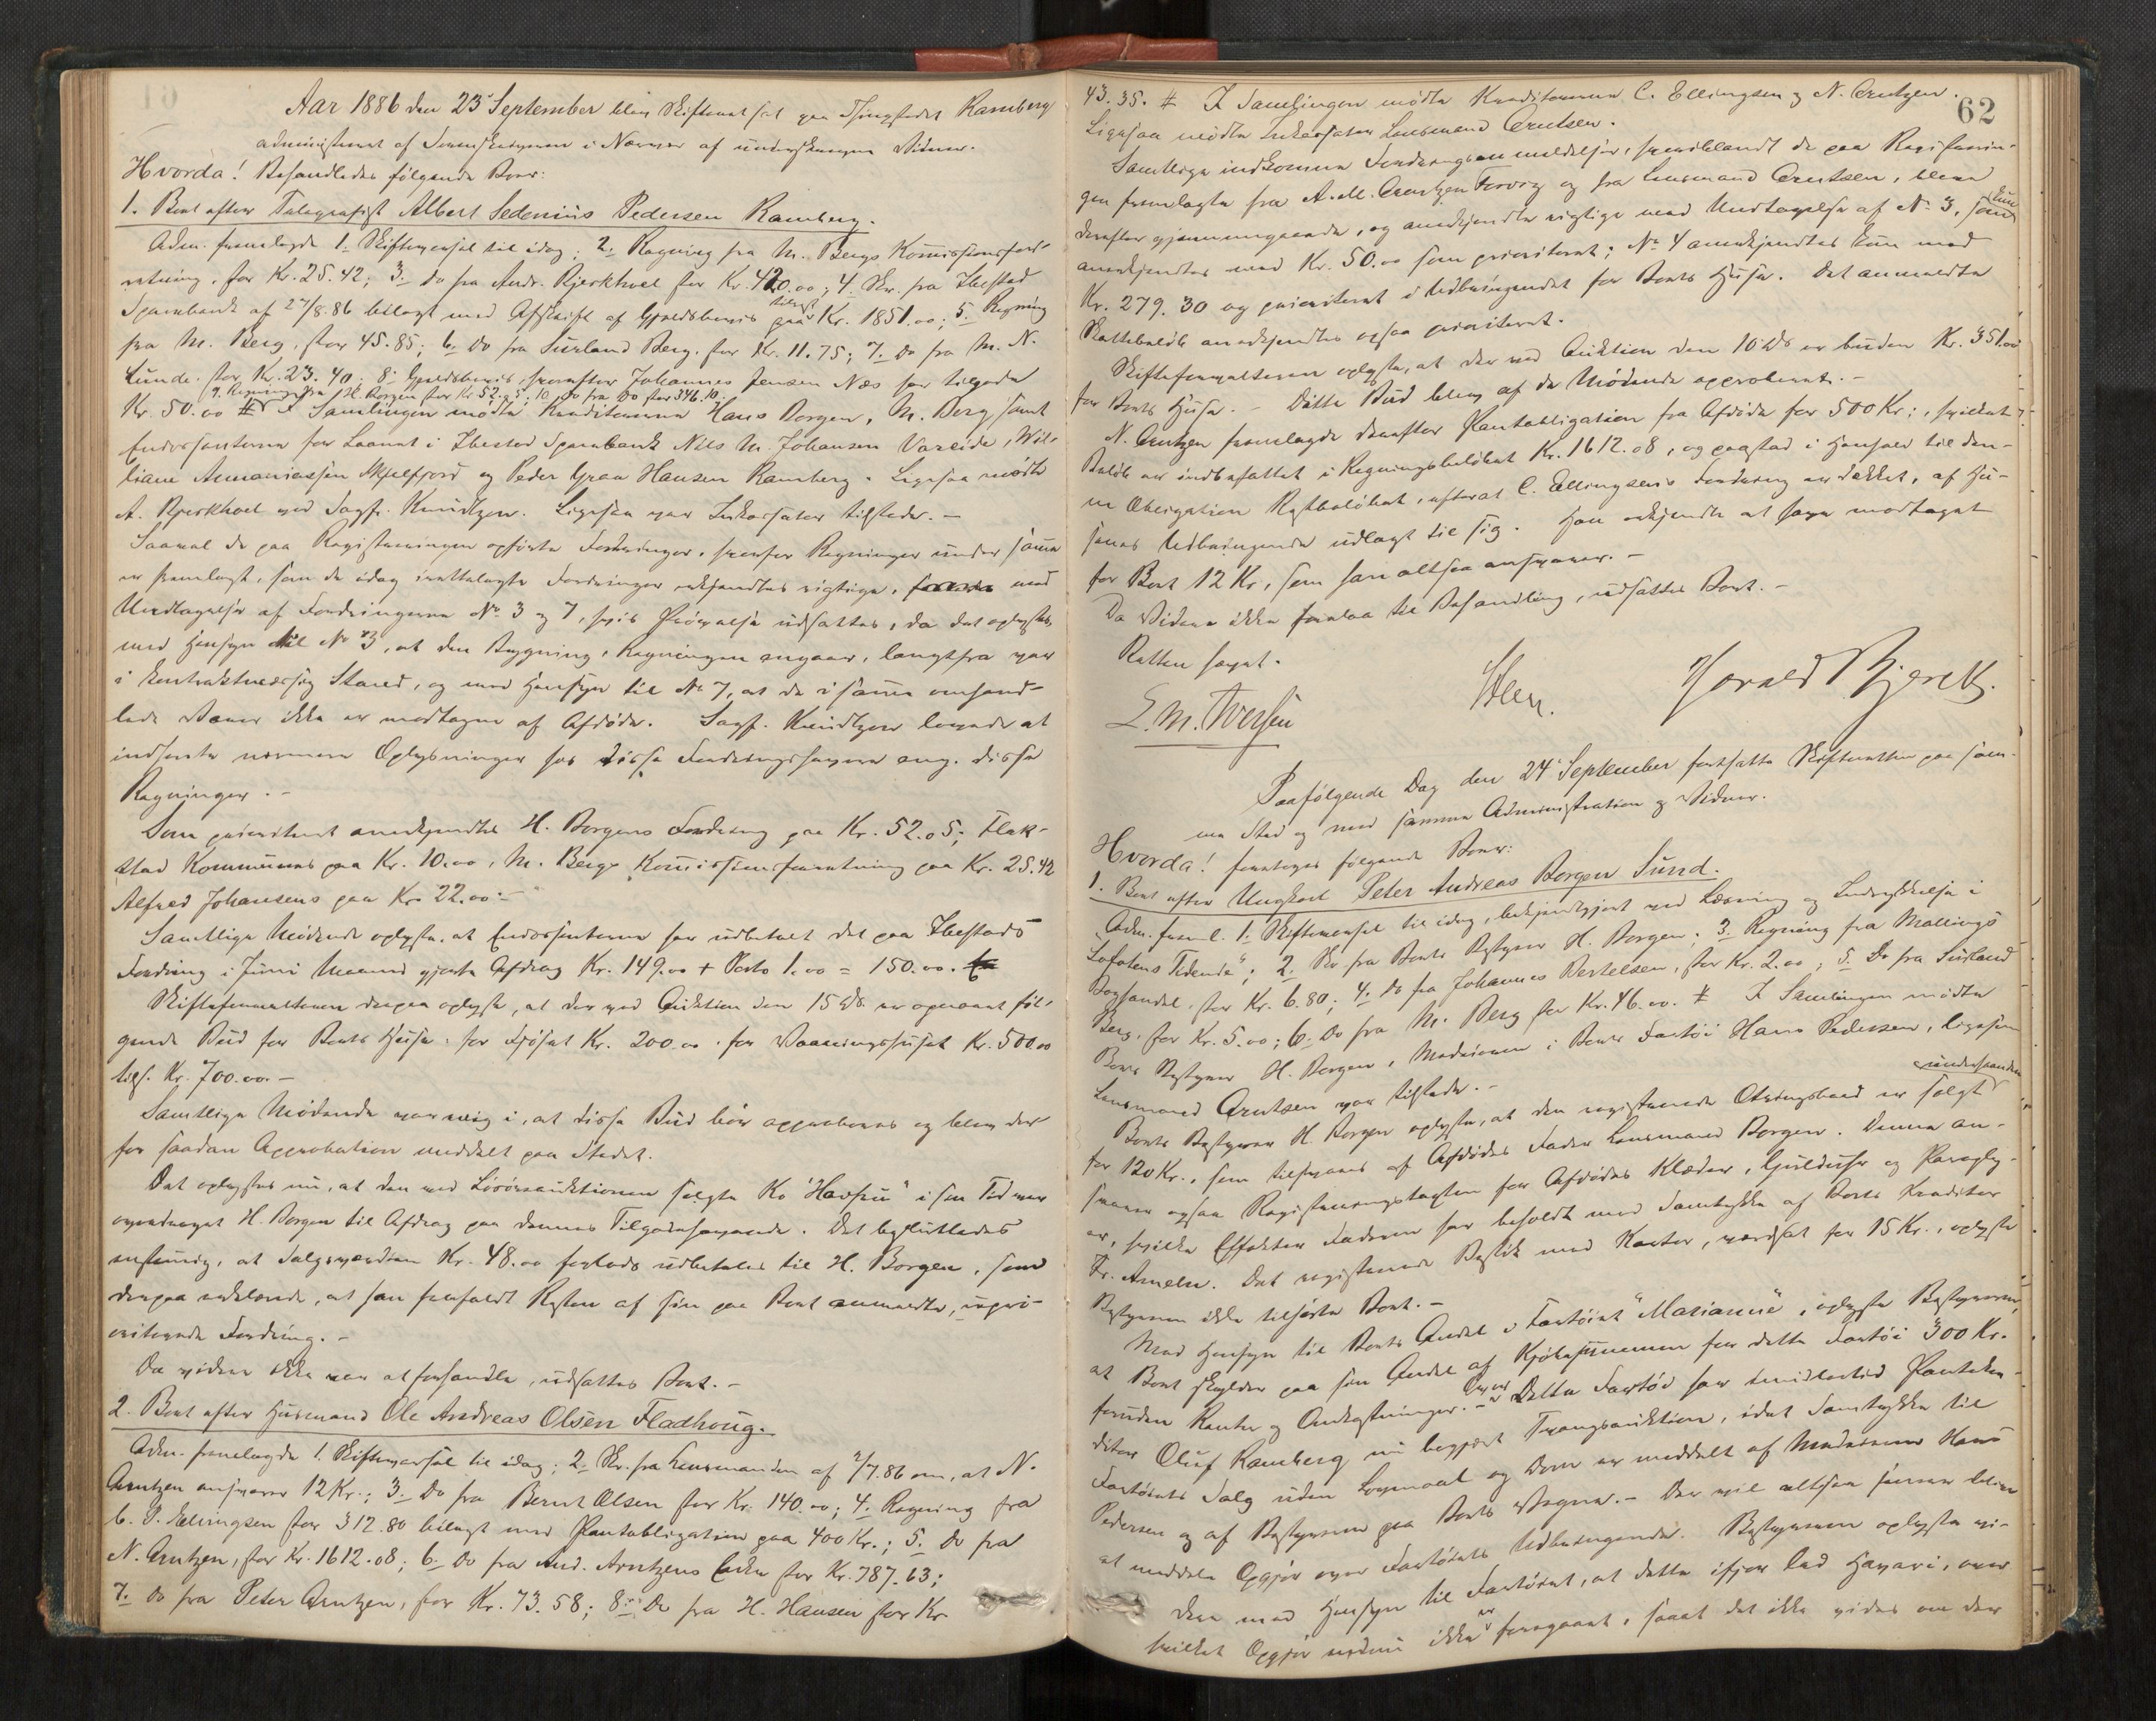 Aar 1886 den 23' September blev Skifteret sat paa Thingstedet Ramberg
administreret af Sorenskriveren i Nærvær af underskrevne Vidner.
Hvorda! Behandledes følgende Boer:
1. Boet efter Telegrafist Albert Sedenius Pedersen Ramberg.
Adm. fremlagde 1. Skiftevarsel til idag; 2. Regning fra M. Bergs Komissionsfor-
retning, stor Kr. 25.42; 3. Do fra Andr. Bjerkhoel stor Kr. 420.00; 4. Skr. fra Ibestad
Sparebank af 27/8.86 bilagt med Afskrift af Gjeldsbevis paa Kr. 1851.00; 5. Regning
fra M. Berg, stor 45.85; 6. Do fra Suiland Berg, stor Kr. 11.75; 7. Do fra M. N.
Lunde, stor Kr. 23.40; 8. Gjeldsbevis, hvorefter Johannes Jensen Næs har tilgode
9. Regning fra H. Borgen stor Kr 52.05; 10 Do fra Do stor 346.10.
Kr. 50.00 # I Samlingen mødte Kreditorerne Hans Borgen, M. Berg samt
Endossenterne for Laanet i Ibestad Sparebank Nils M. Johansen Vareide, Wil-
liam Annaniassen Skjelfjord og Peder Graa Hansen Ramberg. Ligesaa mødte
A. Bjerkhoel ved Sagf. Knudtzon. Ligesaa var Inkassator tilstede. -
Saavel de paa Registreringen opførte Fordringer, hvorfor Regninger under samme
er fremlagt, som de idag irettelagte Fordringer erkjendtes rigtige, med
Undtagelse af Fordringerne No 3 og 7, hvis Prøvelse udsattes, da det oplystes
med Hensyn til No 3, at den Bygning, Regningen angaar, langtfra var
i kontraktmæssig Stand, og med Hensyn til No 7, at de i samme omhand-
lede Varer ikke er modtagne af Afdøde. Sagf. Knudtzon lovede at
indhente nærmere Oplysninger hos disse Fordringshavere ang. disse
Regninger. -
Som prioriteret anerkjendtes H. Borgens Fordring paa Kr. 52.05; Flak-
stad Kommunes paa Kr. 10.00, M. Bergs Komissionsforretning paa Kr. 25.42
Alfred Johansens paa Kr. 22.00. -
Samtlige Mødende oplyste, at Endossenterne har udbetalt det paa Ibestads
Fordring i Juni Maaned gjorte Afdrag Kr. 149.00 + Porto 1.00 = 150.00.
Skifteforvalteren derpaa oplyste, at der ved Auktion den 15 ds. er opnaaet føl-
gende Bud for Boets Huse: for Fjøset Kr. 200.00, for Vaaningshuset Kr. 500.00
tils. Kr. 700.00. -
Samtlige Mødende var enig i, at disse Bud bør approberes og blev der-
for saadan Approbation meddelt paa Stedet.
Det oplystes nu, at den ved Løsøreauktionen solgte Ko "Havfru" i sin Tid var
overdraget H. Borgen til Afdrag paa dennes Tilgodehavende. Det besluttedes
enstemmig, at Salgsværdien Kr. 48.00 forlods udbetales til H. Borgen, som
derpaa erklærede, at han frafaldt Resten af sin paa Boet anmeldte, upri-
oriterede Fordring. -
Da videre ikke var at forhandle, udsattes Boet. -
2. Boet efter Husmand Ole Andreas Olsen Fladhoug.
Adm. fremlagde 1. Skiftevarsel til idag; 2. Skr. fra Lensmanden af 2/7.86 om, at N.
Arntzen ansvarer 12 Kr.; 3. Do fra Bernt Olsen stor Kr. 140.00; 4. Regning fra
C. P. Ellingsen stor 312.80 bilagt med Pantobligation paa 400 Kr.; 5. Do fra
N. Arntzen, stor Kr. 1612.08; 6. Do fra And. Arntzens Enke stor Kr. 787.63;
7. Do fra Peter Arntzen, stor Kr. 73.58; 8. Do fra H. Hansen stor Kr.
62
43.35. # I Samlingen mødte Kreditorerne C. Ellingsen og N. Arntzen.
Ligesaa mødte Inkassator Lensmand Arntsen.
Samtlige indkomne Fordringsanmeldelser, hvoriblandt de paa Registrerin-
gen fremlagte fra A. M. Arntzen Forvig og fra Lensmand Arntsen, blev
derefter gjennemgaaede, og anerkjendte rigtige med Undtagelse af No 3, som kun
anerkjendtes med Kr. 50.00 som prioriteret; No 4 anerkjendtes kun med
Kr. 279.30 og prioriteret i Udbringendet for Boets Huse. Det anmeldte
Skattebeløb anerkjendtes ogsaa prioriteret.
Skifteforvalteren oplyste, at der ved Auktion den 16 ds er buden Kr. 351.00
for Boets Huse. - Dette Bud blev af de Mødende approberet. -
N. Arntzen fremlagde derefter Pantobligation fra Afdøde for 500 Kr., hvilket
Beløb er indbefattet i Regningsbeløbet Kr. 1612.08, og paastod i Henhold til den-
ne Obligation Restbeløbet, efterat C. Ellingsens Fordring er dækket, af Hu-
senes Udbringende udlagt til sig. Han erkjendte at have modtaget
for Boet 12 Kr., som han altsaa ansvarer. -
Da Videre ikke forelaa til Behandling, udsattes Boet. -
Retten hævet.
Steen.
Harald Bjerch.
E. M. Iversen
Paafølgende Dag den 24' September fortsatte Skifteretten paa sam-
me Sted og med samme Administration og Vidner.
Hvorda! foretoges følgende Boer:
1. Boet efter Ungkarl Peter Andreas Borgen Sund.
Adm. freml. 1. Skiftevarsel til idag, bekjendtgjort ved Læsning og Indrykkelse i
"Lofotens Tidende"; 2. Skr fra Boets Bestyrer H. Borgen; 3. Regning fra Mallings
Boghandel, stor Kr. 6.80; 4. Do fra Johannes Bertelsen, stor Kr. 2.00; 5. Do fra Suiland
Berg, stor Kr. 5.00; 6. Do fra M. Berg stor Kr. 46.00. # I Samlingen mødte
Boets Bestyrer H. Borgen, Medeieren i Boets Fartøi Hans Pedersen, ligesom
Lensmand Arntsen var tilstede. -
Boets Bestyrer H. Borgen oplyste, at den registrerede Otringsbaad er solgt underhaanden
for 120 Kr., som tilsvares af Afdødes Fader Lensmand Borgen. Denne an-
svarer ogsaa Registreringstaxten for Afdødes Klæder, Gulduhr og Paraply-
er, hvilke Effekter Faderen har beholdt med Samtykke af Boets Kreditor
Fr. Ameln. Det registrerede Bestik med Karter, værdsat for 15 Kr., oplyste
Bestyreren ikke tilhørte Boet. -
Med Hensyn til Boets Andel i Fartøiet "Marianne", oplyste Bestyreren,
at Boet skylder paa sin Andel af Kjøbesummen for dette Fartøi 300 Kr.
foruden Renter og Omkostninger. - Dette Fartøi har imidlertid Pantekre-
ditor Oluf Ramberg nu begjært Tvangsauktion, idet Samtykke til
Fartøiets Salg uden Lovmaal og Dom er meddelt af Medeieren Hans
Pedersen og af Bestyreren paa Boets Vegne. - Der vil altsaa senere blive
at meddele Opgjør over Fartøiets Udbringende. Bestyreren oplyste vi-
dere med Hensyn til Fartøiet, at dette ifjor led Havari, over
hvilket Opgjør endnu ikke er foregaaet, saaat det ikke vides om der